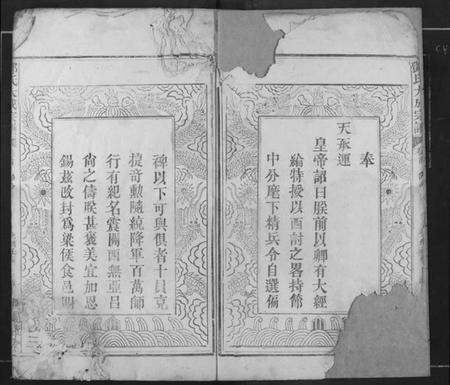 奉
天承運
皇帝詔曰朕前以卿有大經
綸特授以西討之畧持節
中分麾下精兵令自選偏
裨以下可與俱者十員克
捷奇勳隨統降軍百萬師
行有紀名震關西無亞吕
尙之儔朕甚褒美宜加恩
錫兹改封為梁侯食邑明